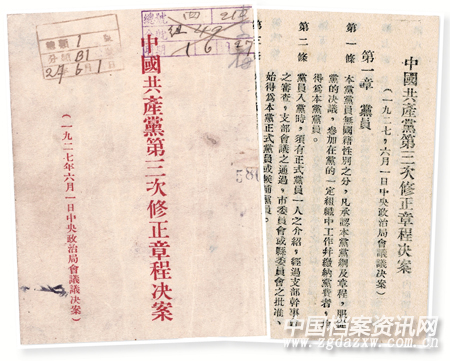 中國共產黨第三次修正章程决案
(一九二七年六月一日中央政治局會議議决案)
中國共產黨第三次修正章程决案
(一九二七,六月一日中央政治局會議議决案)
第一章 黨員
第一條 本黨黨員無國籍性別之分,凡承認本黨黨綱及章程,服從
黨的决議,參加在黨的一定組織中工作幷繳納黨費者,
得爲本黨黨員。
第二條 黨員入黨時,須有正式黨員一人之介紹,經過支部幹事
之審查,支部會議之通過,市委員會或縣委員會之批准,
始得爲本黨正式黨員或候補黨員。
中国档案资讯网
www.zgdazxw.com.cn